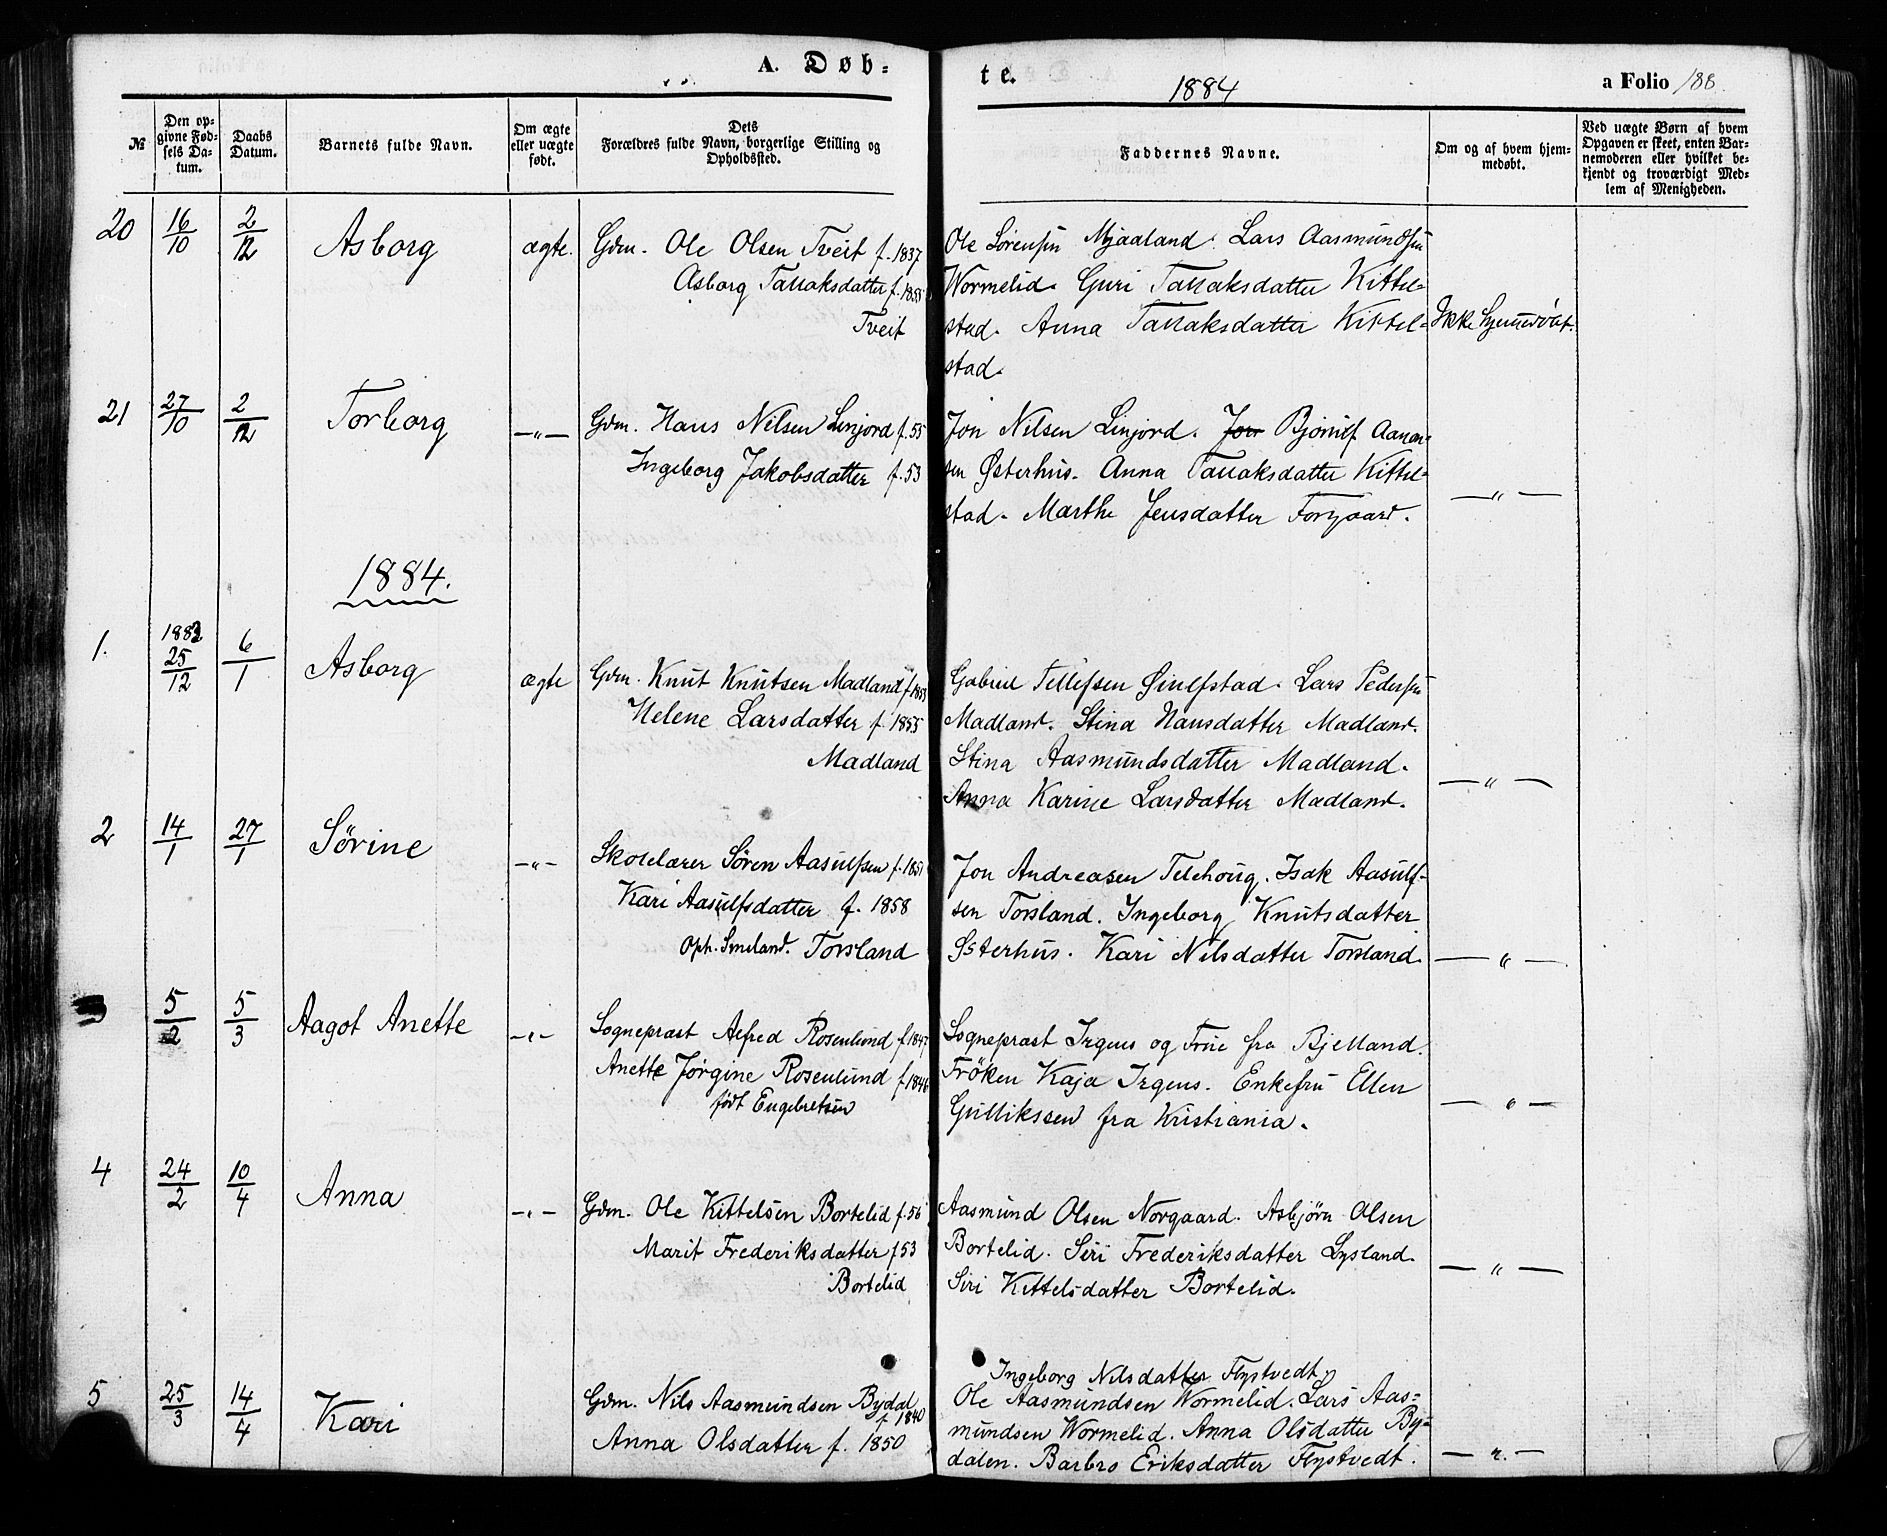 A. Døb-
te.
1884
a Folio 188.
№
Den op-
givne Fød-
sels Da-
tum.
Daabs
Datum.
Barnets fulde Navn.
Om ægte
eller uægte
født.
Dets
Forældres fulde Navn, borgerlige Stilling og
Opholdssted.
Faddernes Navne.
Om og af hvem hjem-
medøbt.
Ved uægte Børn af hvem
Opgaven er skeet, enten Bar-
nemoderen eller hvilket be-
kjendt og troværdigt Med-
lem af Menigheden.
20 16/10 2/12 Asborg ægte. Gdm. Ole Olsen Tveit f. 1837
Asborg Tallaksdatter f. 1855
Tveit
Ole Sørensen Mjaaland. Lars Aasmundsen
Wormelid. Guri Tallaksdatter Kittel-
stad. Anna Tallaksdatter Kittel-
stad.
Ikke hjemmedøbt.
21 27/10 2/12 Torborg —〃— Gdm. Hans Nilsen Linjord f. 55
Ingeborg Jakobsdatter f. 53
Jon Nilsen Linjord. Jon Bjönulf Aanon-
sen Østerhus. Anna Tallaksdatter Kittel-
stad. Marthe Jensdatter Forgaard.
—〃—
1884.
1. 1883 25/12 6/1 Asborg ægte Gdm. Knut Knutsen Madland f. 1853
Helene Larsdatter f. 1855
Madland
Gabriel Tellefsen Øiulfstad. Lars Pedersen
Madland. Stina Hansdatter Madland.
Stina Aasmundsdatter Madland.
Anna Karine Larsdatter Madland.
—〃—
2 14/1 27/1 Sørine —〃— Skolelærer Søren Aasulfsen f. 1851
Kari Aasulfsdatter f. 1858
Oph. Smeland. Torsland
Jon Andreasen Telehoug. Isak Aasulf-
sen Torsland. Ingeborg Knutsdatter
Østerhus. Kari Nilsdatter Torsland.
—〃—
3 5/2 5/3 Aagot Anette —〃— Sognepræst Alfred Rosenlund f. 1847
Anette Jørgine Rosenlund f. 1846
født Engebretsen
Sogneprest Irgens og Frue fra Bjelland.
Frøken Kaja Irgens. Enkefru Ellen
Gullikssen fra Kristiania.
—〃—
4 24/2 10/4 Anna —〃— Gdm. Ole Kittelsen Bortelid f. 56
Marit Frederiksdatter f 53
Bortelid
Aasmund Olsen Norgaard. Asbjørn Olsen
Bortelid. Siri Frederiksdatter Lysland.
Siri Kittelsdatter Bortelid.
—〃—
5 25/3 14/4 Kari Gdm. Nils Aasmundsen Bydal
f 1840
Anna Olsdatter f. 1850
Ingeborg Nilsdatter Flystvedt
Ole Aasmundsen Wormelid. Lars Aas-
mundsen Wormelid. Anna Olsdatter By-
dalen. Barbro Eriksdatter Flystvedt.
—〃—